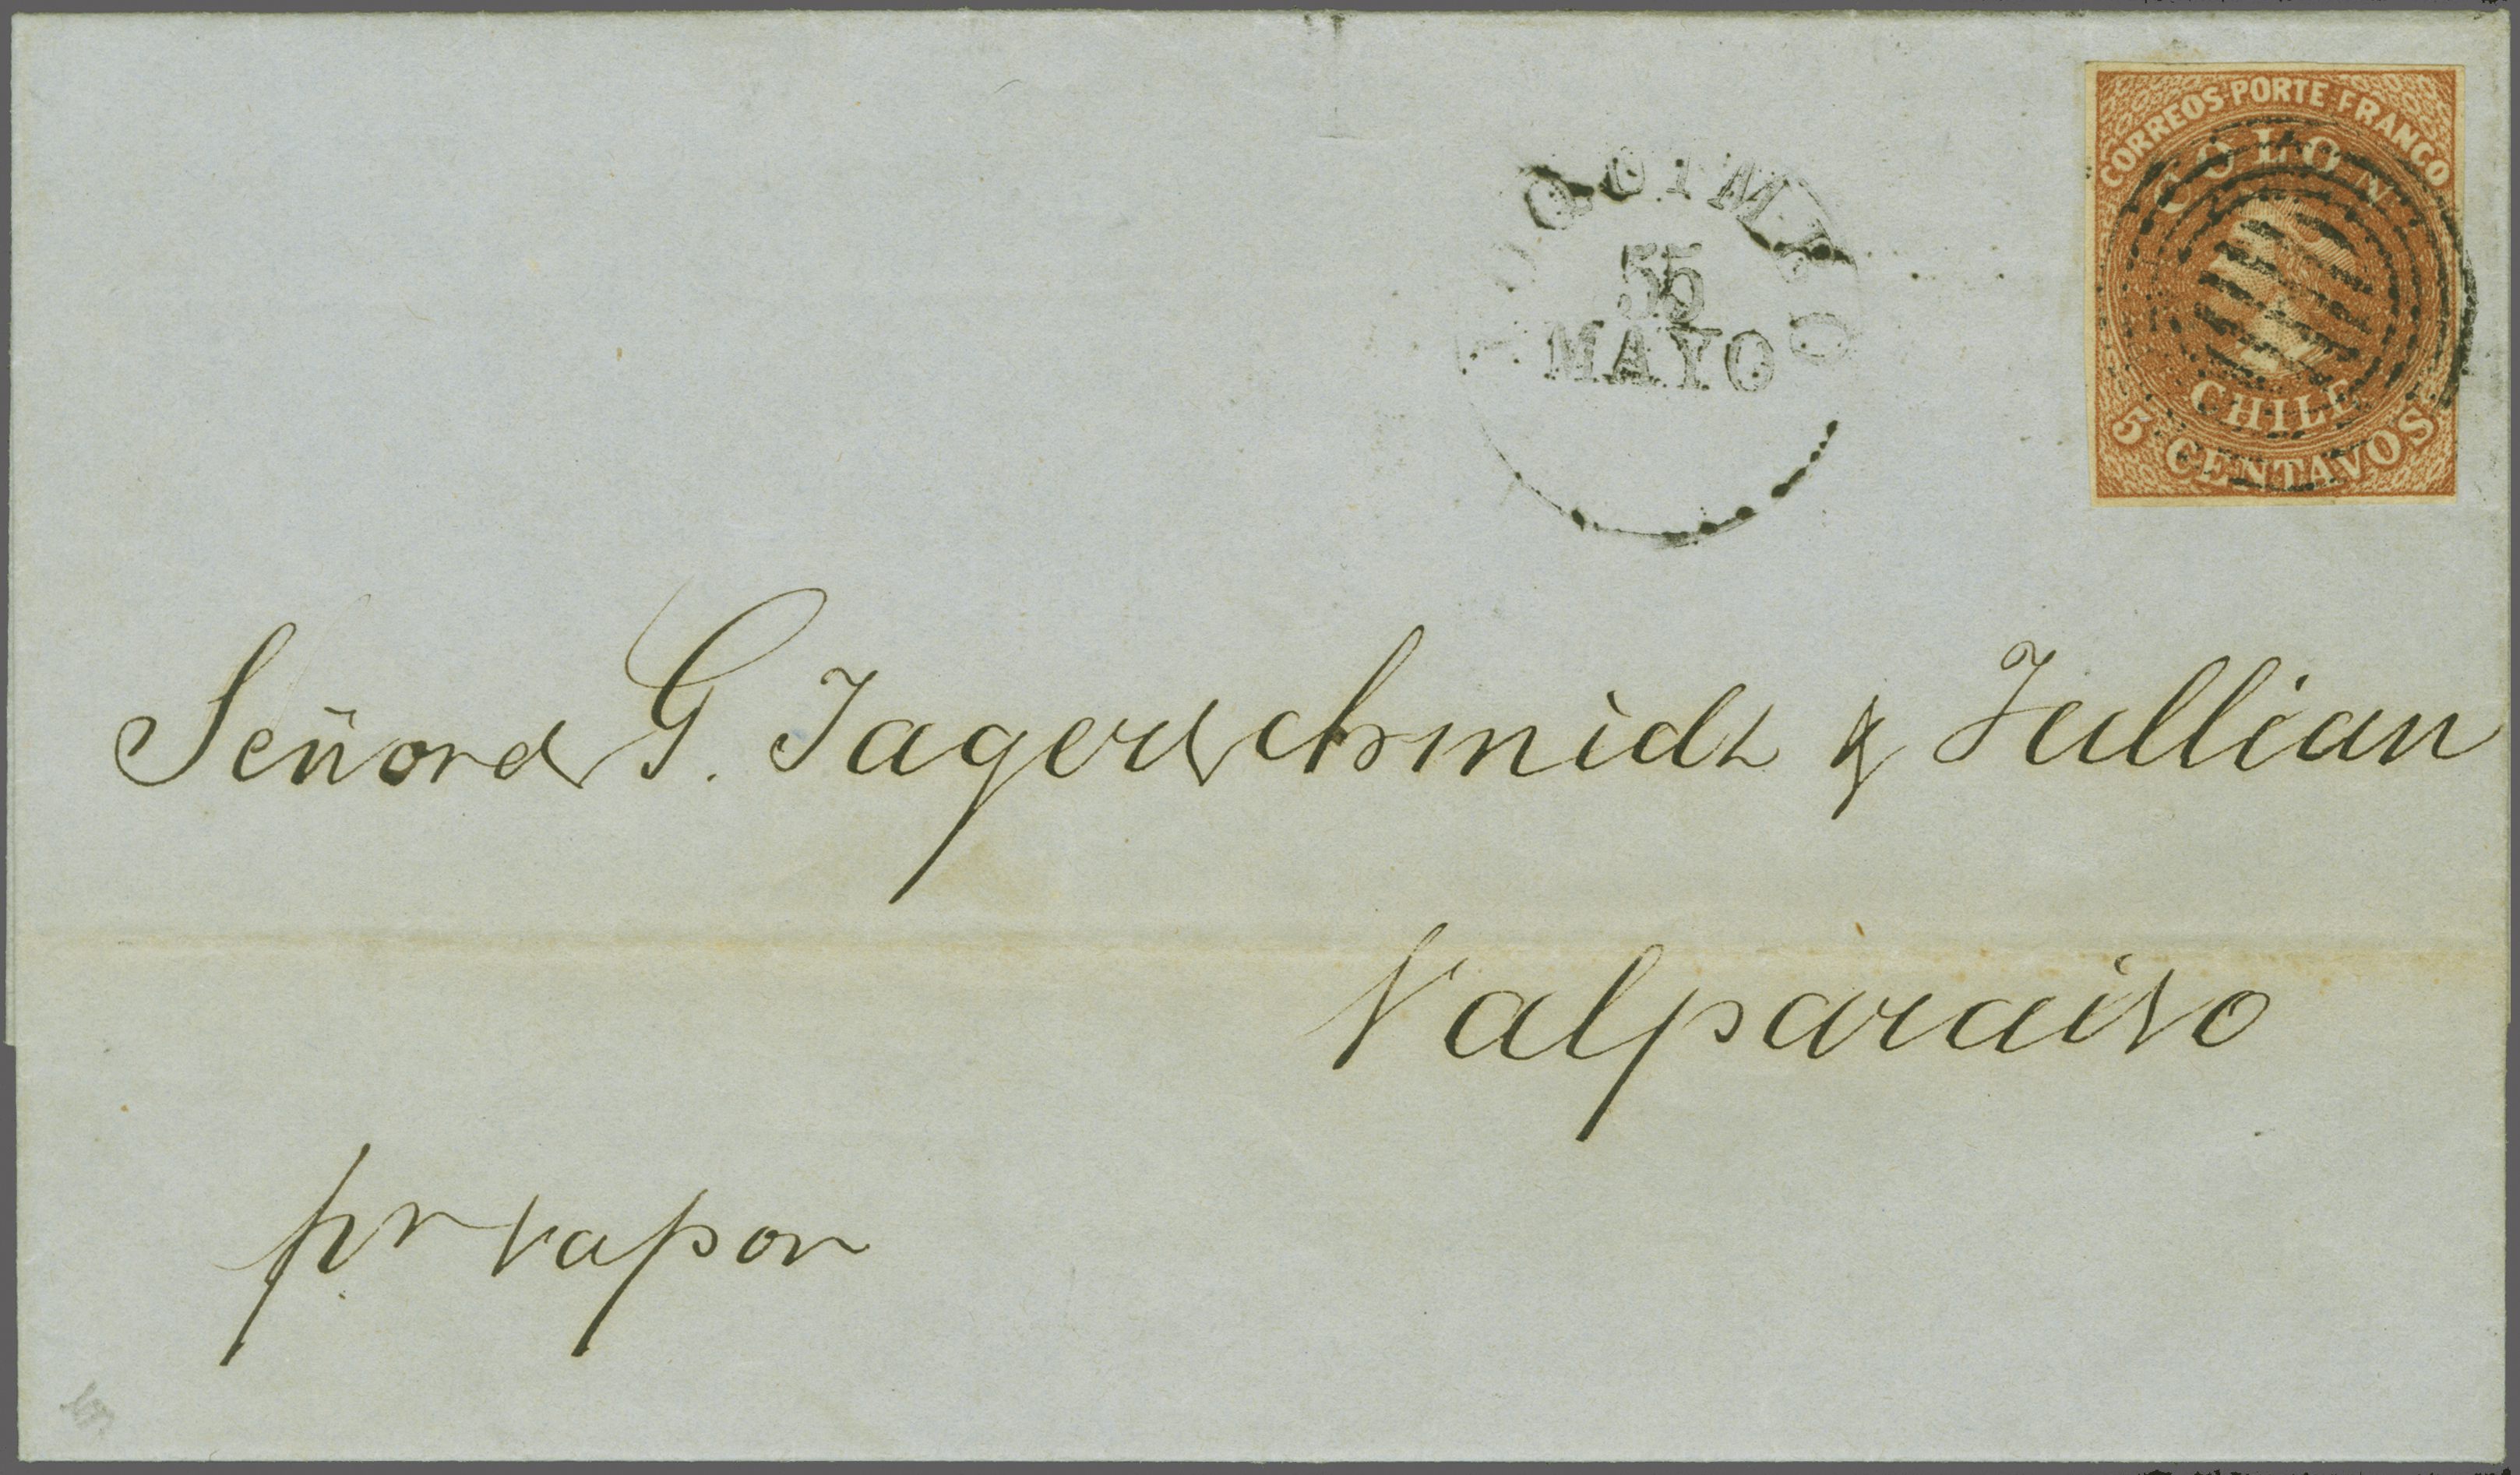 CORREOS PORTE FRANCO
COLON
CHILE
5 CENTAVOS
COQUIMBO
55
MAYO
Señores G. Jagerschmidt & Jullian
Valparaiso
pr vapor